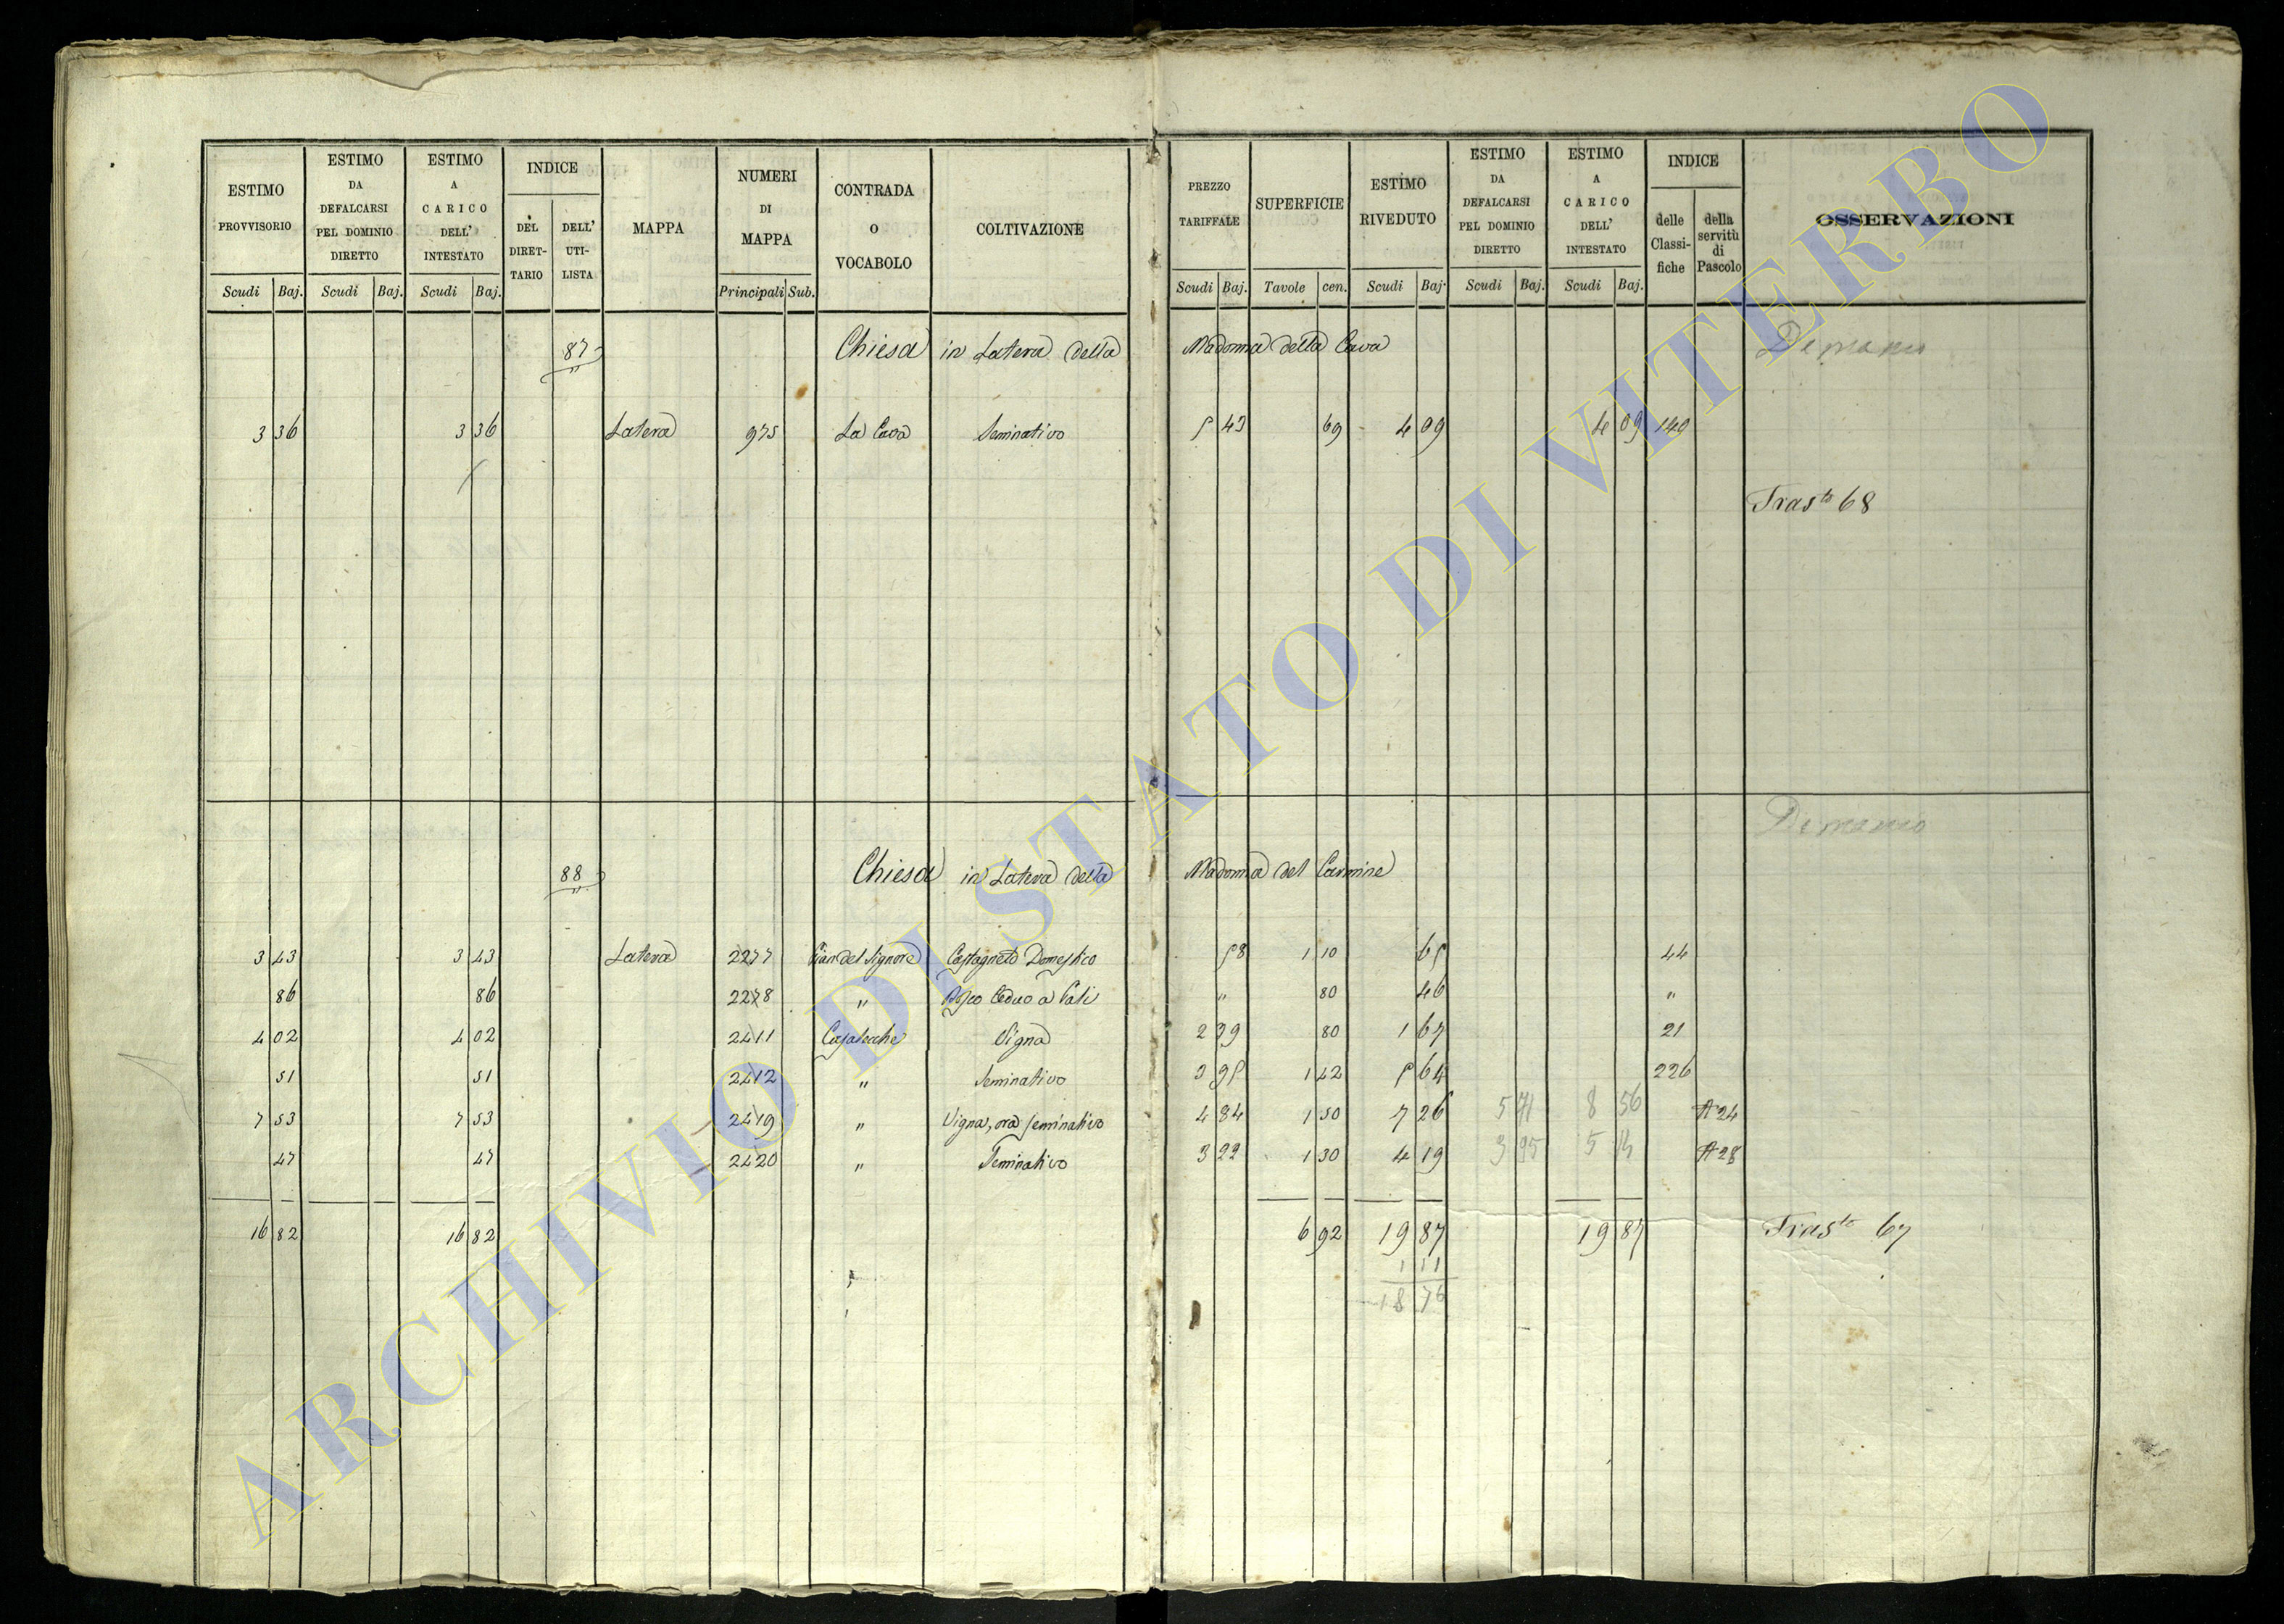 ESTIMO PROVVISORIO Scudi Baj. ESTIMO DA DEFALCARSI PEL DOMINIO DIRETTO Scudi Baj. ESTIMO A CARICO DELL' INTESTATO Scudi Baj. INDICE DEL DIRET-TARIO DELL' UTI-LISTA MAPPA NUMERI DI MAPPA Principali Sub. CONTRADA O VOCABOLO COLTIVAZIONE PREZZO TARIFFALE Scudi Baj. SUPERFICIE Tavole cen. ESTIMO RIVEDUTO Scudi Baj. ESTIMO DA DEFALCARSI PEL DOMINIO DIRETTO Scudi Baj. ESTIMO A CARICO DELL' INTESTATO Scudi Baj. INDICE delle Classi-fiche della servitù di Pascolo OSSERVAZIONI
87 Chiesa in Latera della Madonna della Cava Demanio
3 36 3 36 Latera 975 La Cava Seminativo 5 43 69 4 09 4 09 140
Tras.to 68
Demanio
88 Chiesa in Latera della Madonna del Carmine
3 43 3 43 Latera 2277 Pian del Signore Castagneto Domestico 58 1 10 65 44
86 86 2278 " Bosco Ceduo a Pali " 80 46 "
4 02 4 02 2411 Vigna 2 39 80 1 67 21
51 51 2412 " Seminativo 3 95 1 42 5 64 226
7 53 7 53 2419 " Vigna, ora seminativo 4 84 1 50 7 26 5 71 8 56 A 24
47 47 2420 " Seminativo 3 22 1 30 4 19 3 95 5 A 28
16 82 16 82 6 92 19 87 19 87 Tras.to 67
1 11
18 76
ARCHIVIO DI STATO DI VITERBO